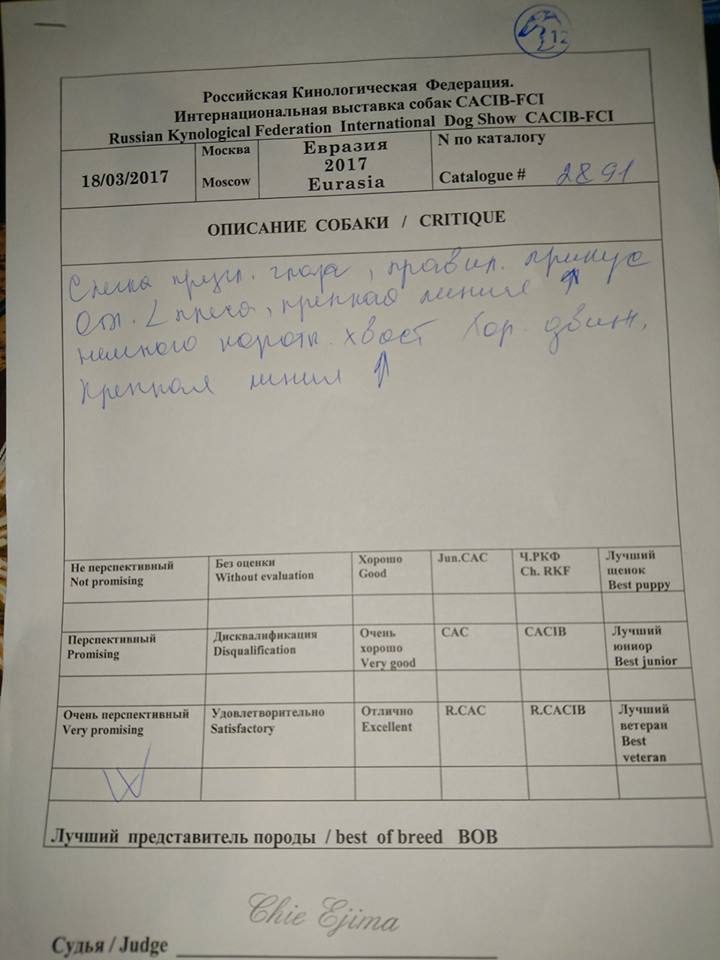 12
Российская Кинологическая Федерация.
Интернациональная выставка собак CACIB-FCI
Russian Kynological Federation International Dog Show CACIB-FCI
18/03/2017
Москва
Moscow
Евразия
2017
Eurasia
N по каталогу
Catalogue # 2891
ОПИСАНИЕ СОБАКИ / CRITIQUE
Слегка глаза, правил. прикус
Отл. плеча, крепкая линия
немного коротк. хвост Хор. движ.
крепкая линия
Не перспективный
Not promising
Без оценки
Without evaluation
Хорошо
Good
Jun.CAC
Ч.РКФ
Ch. RKF
Лучший
щенок
Best puppy
Перспективный
Promising
Дисквалификация
Disqualification
Очень
хорошо
Very good
CAC
CACIB
Лучший
юниор
Best junior
Очень перспективный
Very promising
Удовлетворительно
Satisfactory
Отлично
Excellent
R.CAC
R.CACIB
Лучший
ветеран
Best
veteran
Лучший представитель породы / best of breed BOB
Chie Ejima
Судья / Judge